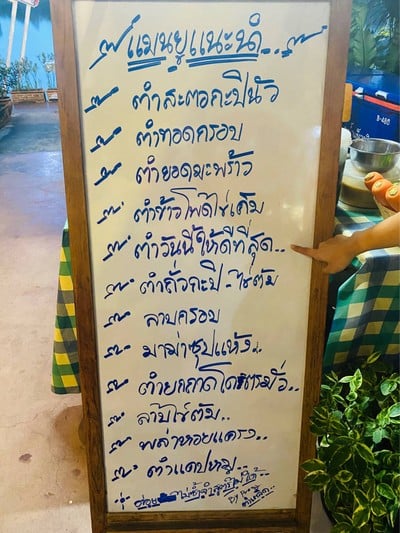 เมนูแนะนำ
ตำสะตอกะปินัว
ตำทอดกรอบ
ตำยอดมะพร้าว
ตำข้าวโพดไข่เค็ม
ตำวันนี้ให้ดีที่สุด..
ตำถั่วกะปิ - ไข่ต้ม
ลาบครอบ
มาม่าซุปแห้ง..
ตำยกถาดโคตรมั่ว..
ลาบไข่ต้ม..
พล่าหอยแครง..
ตำแคปหมู..